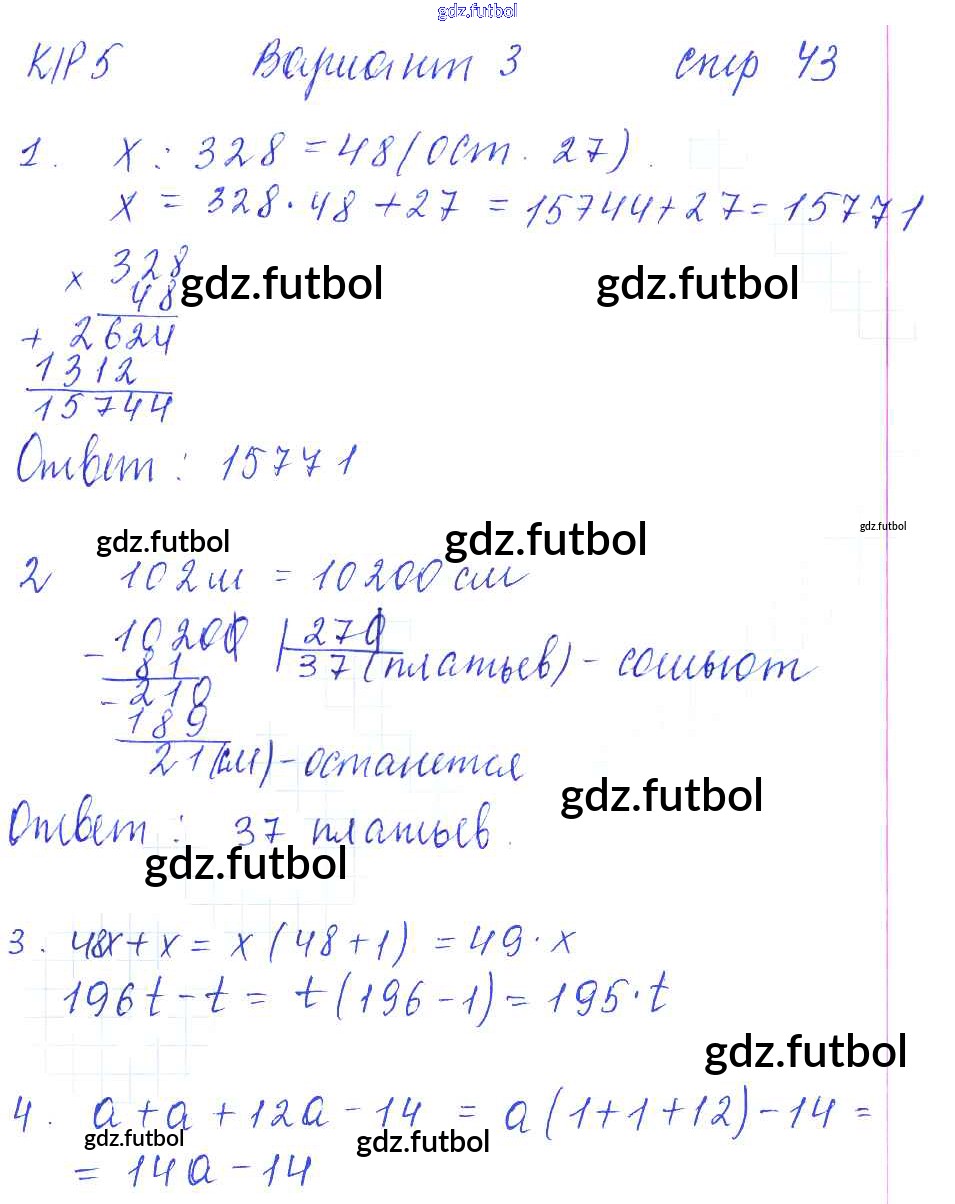 gdz.futbol
К/Р 5 Вариант 3 стр 43
1. x : 328 = 48 (ост. 27).
x = 328 · 48 + 27 = 15744 + 27 = 15771
× 328
48
gdz.futbol gdz.futbol
+ 2624
1312
15744
Ответ : 15771
gdz.futbol gdz.futbol gdz.futbol
2 102 м = 10200 см
- 10200 | 270
81 37 (платьев) - сошьют
- 210
189
21 (см) - останется
gdz.futbol
Ответ : 37 платьев.
gdz.futbol
3. 48x + x = x (48 + 1) = 49 · x
196t - t = t (196 - 1) = 195 · t
gdz.futbol
4. a + a + 12a - 14 = a (1 + 1 + 12) - 14 =
gdz.futbol gdz.futbol
= 14a - 14